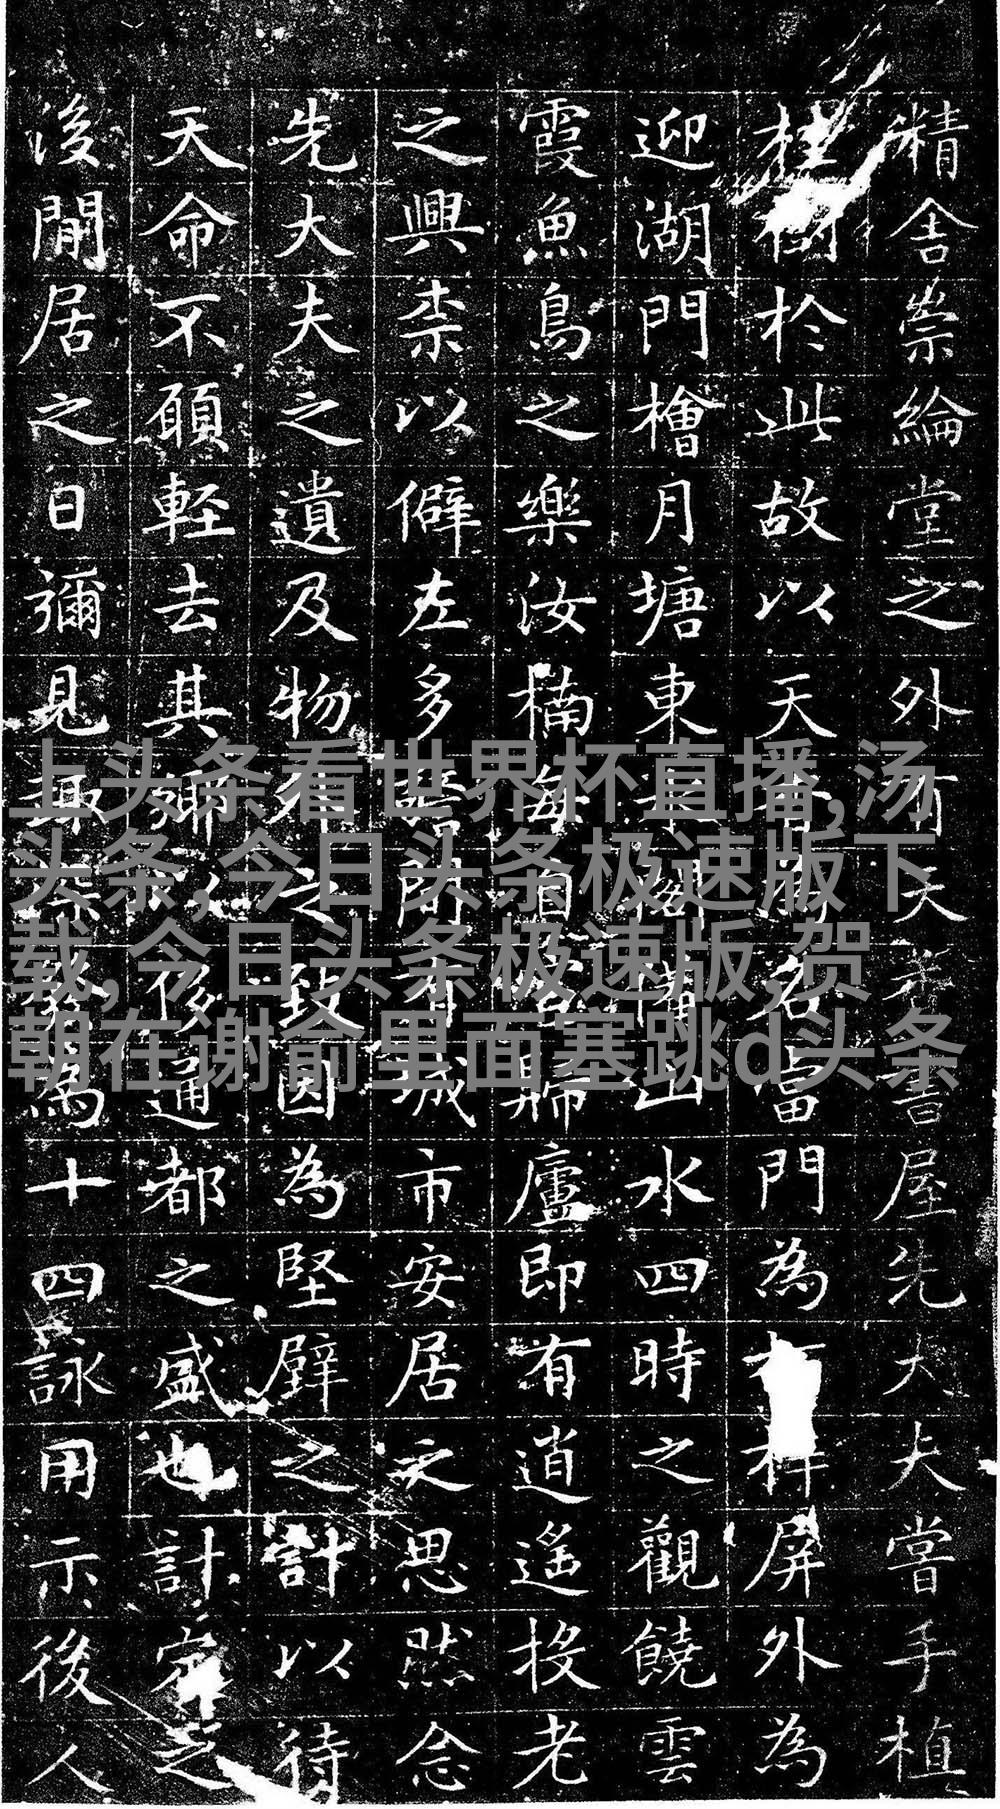 精舍崇綸堂之外有天香書屋先大夫嘗手植
桂樹於此故以天香名當門為梓屏外為
迎湖門檜月塘東閣山水四時之觀饒雲
霞魚鳥之樂汝楠每自歸廬即有逍遙投老
之興柰以僻左多城市安居之思然念
先大夫之遺及物力之致因為堅壁之計以待
天命不願輕去其鄉以後通都之盛也計定之
後閒居之日彌見趣為十四詠用示後人
上头条看世界杯直播,汤
头条,今日头条极速版下
载,今日头条极速版,贺
朝在谢俞里面塞跳d头条